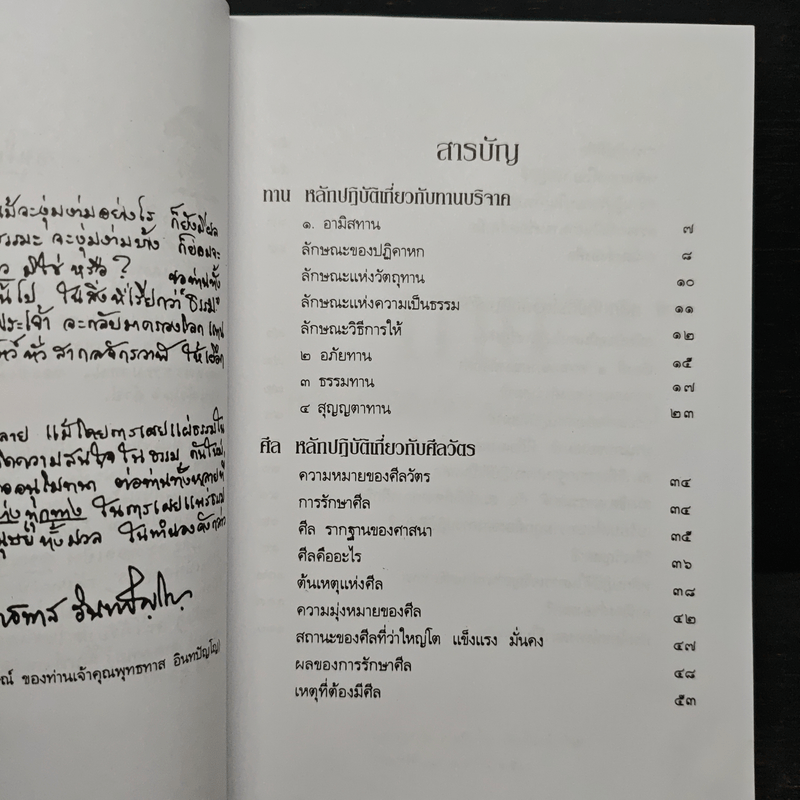 แม้จะงุ่มง่ามอย่างไร ก็ยังมีผล
ธรรมะ จะงุ่มง่ามบ้าง ก็ย่อมจะ
มิใช่ หรือ? ขอท่านทั้ง
นี้ไป ในสิ่งที่เรียกว่า "ธรรม"
พระเจ้า จะกลับมาครองโลก
ทั่ว สากลจักรวาฬ ให้
แม้โดยการเผยแผ่ธรรมใน
ความสนใจ ใน ธรรม กันใหม่,
อนุโมทนา ต่อท่านทั้งหลายที่
ทุกทาง ในการเผยแพร่ธรรม
ทั้งมวล ในทำนองดังกล่าว
พุทธทาส อินทปัญโญ
ของท่านเจ้าคุณพุทธทาส อินทปัญโญ)
สารบัญ
ทาน หลักปฏิบัติเกี่ยวกับทานบริจาค
๑. อามิสทาน ๗
ลักษณะของปฏิคาหก ๘
ลักษณะแห่งวัตถุทาน ๑๐
ลักษณะแห่งความเป็นธรรม ๑๑
ลักษณะวิธีการให้ ๑๒
๒ อภัยทาน ๑๕
๓ ธรรมทาน ๑๗
๔ สุญญตาทาน ๒๓
ศีล หลักปฏิบัติเกี่ยวกับศีลวัตร
ความหมายของศีลวัตร ๓๔
การรักษาศีล ๓๔
ศีล รากฐานของศาสนา ๓๕
ศีลคืออะไร ๓๖
ต้นเหตุแห่งศีล ๓๘
ความมุ่งหมายของศีล ๔๒
สถานะของศีลที่ว่าใหญ่โต แข็งแรง มั่นคง ๔๗
ผลของการรักษาศีล ๔๘
เหตุที่ต้องมีศีล ๕๓